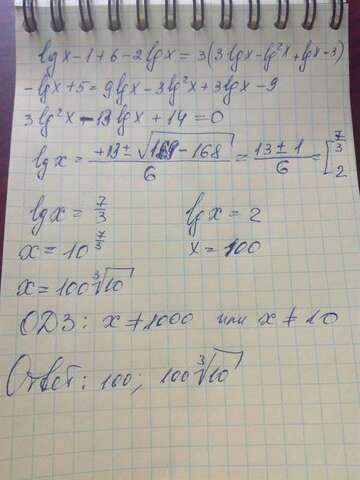 lgx - 1 + 6 - 2lgx = 3(3lgx - lg²x + lgx - 3)
-lgx + 5 = 9lgx - 3lg²x + 3lgx - 9
3lg²x - 13lgx + 14 = 0
lgx = (+13 ± √(169 - 168))/6 = (13 ± 1)/6 = [7/3 2
lgx = 7/3 lgx = 2
x = 10^(7/3) x = 100
x = 100∛10
ОДЗ: x ≠ 1000 или x ≠ 10
Ответ: 100; 100∛10